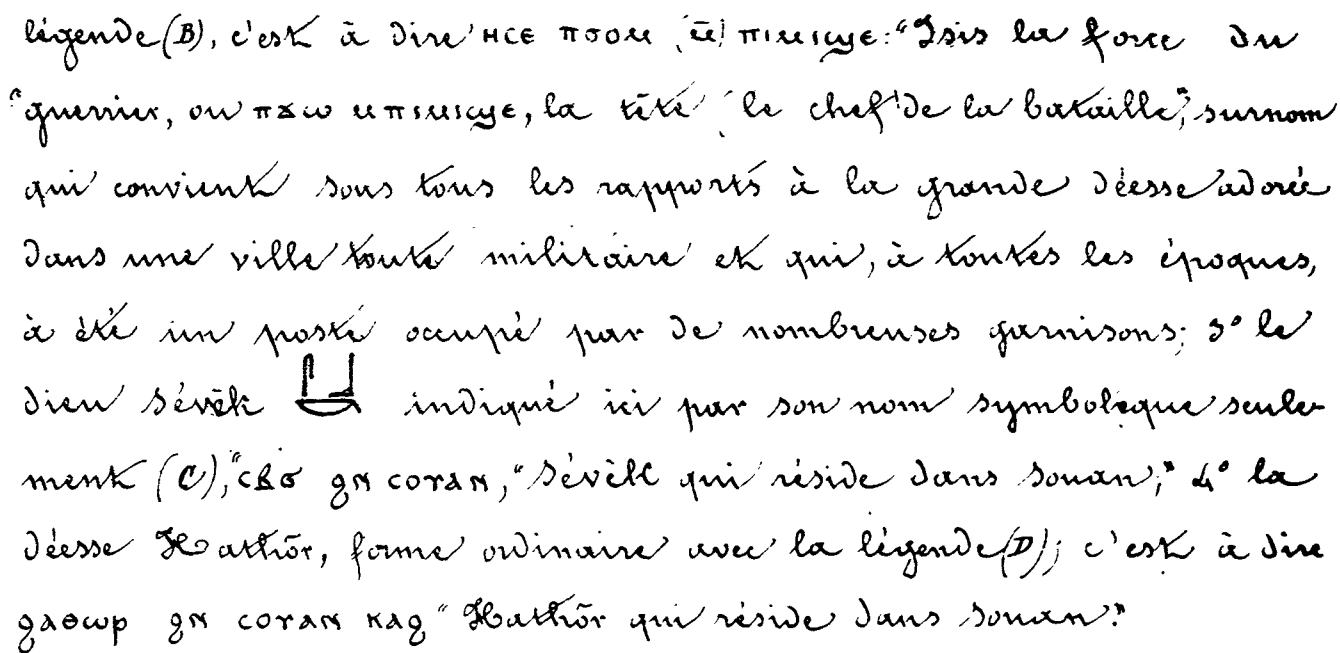 légende (B), c'est à dire ⲏⲥⲉ ⲡϭⲟⲙ (ⲙ̄) ⲡⲓⲙⲓϣⲉ: "Isis la force du
"guerrier, ou ⲡϫⲱ ⲙⲡⲓⲙⲓϣⲉ, la tête (le chef) de la bataille", surnom
qui convient sous tous les rapports à la grande déesse adorée
dans une ville toute militaire et qui, à toutes les époques,
à été un poste occupé par de nombreuses garnisons; 3° le
dieu Sévêk indiqué ici par son nom symbolique seule-
ment (C), "ⲥⲃϭ ϩⲛ ⲥⲟⲩⲁⲛ, "Sévèk qui réside dans Souan;" 4° la
déesse Hathôr, forme ordinaire avec la légende (D); c'est à dire
ϩⲁⲑⲱⲣ ϩⲛ ⲥⲟⲩⲁⲛ ⲕⲁϩ "Hathôr qui réside dans Souan."